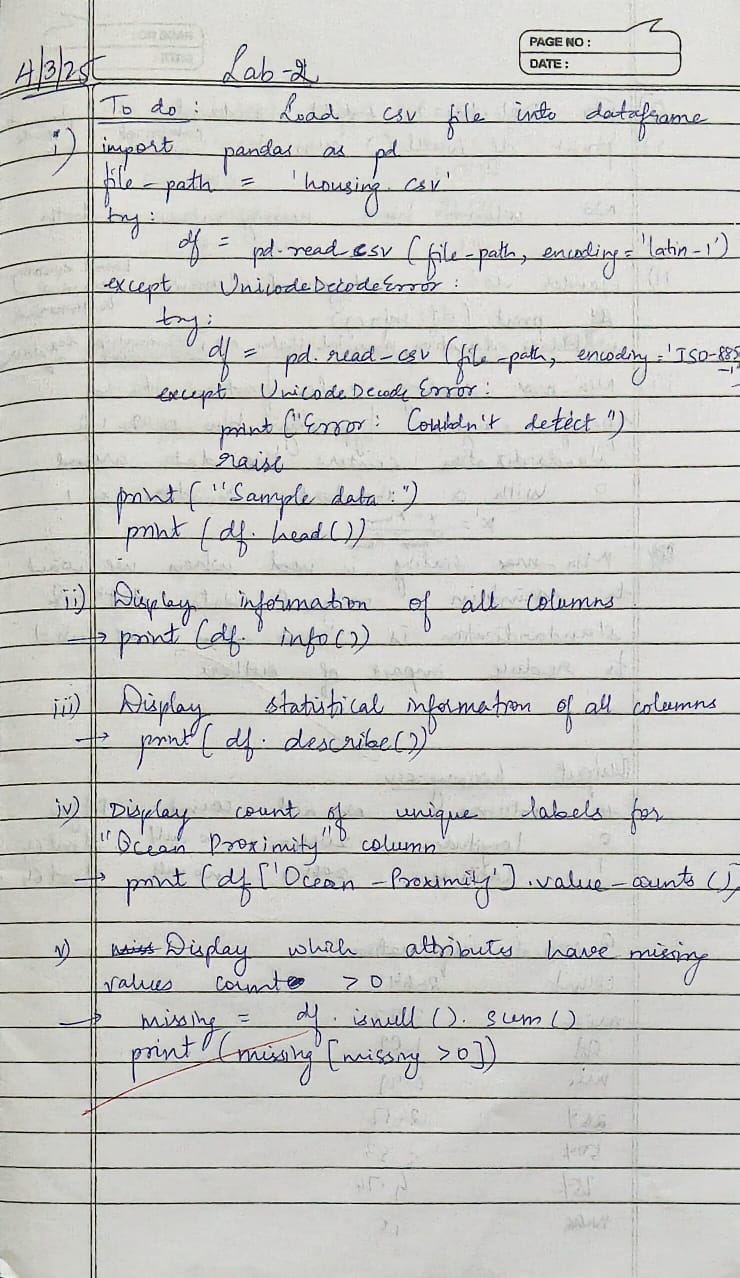 PAGE NO :
DATE :
4/3/25 Lab-2
To do : Load csv file into dataframe
i) import pandas as pd
file-path = 'housing.csv'
try:
df = pd.read_csv (file-path, encoding='latin-1')
except UnicodeDecodeError :
try:
df = pd.read-csv (file-path, encoding='ISO-885
-1'
except UnicodeDecodeError :
print ("Error: Couldn't detect")
raise
print ("Sample data :")
print (df.head())
ii) Display information of all columns
→ print (df.info())
iii) Display statistical information of all columns
→ print (df.describe())
iv) Display count of unique labels for
"Ocean Proximity" column
→ print (df['Ocean-Proximity'].value-counts()
v) Display which attributes have missing
values count > 0
→ missing = df.isnull().sum()
print (missing [missing >0])